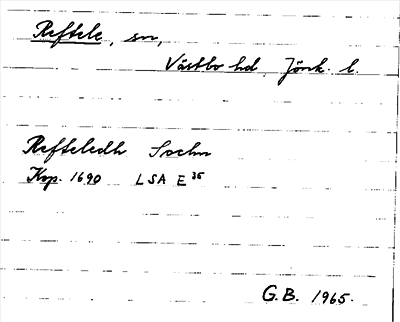 Reftele, sn,
Västbo hd, Jönk. l.
Refteledh Sochn
Kop. 1690 LSA E 35
G.B. 1965.